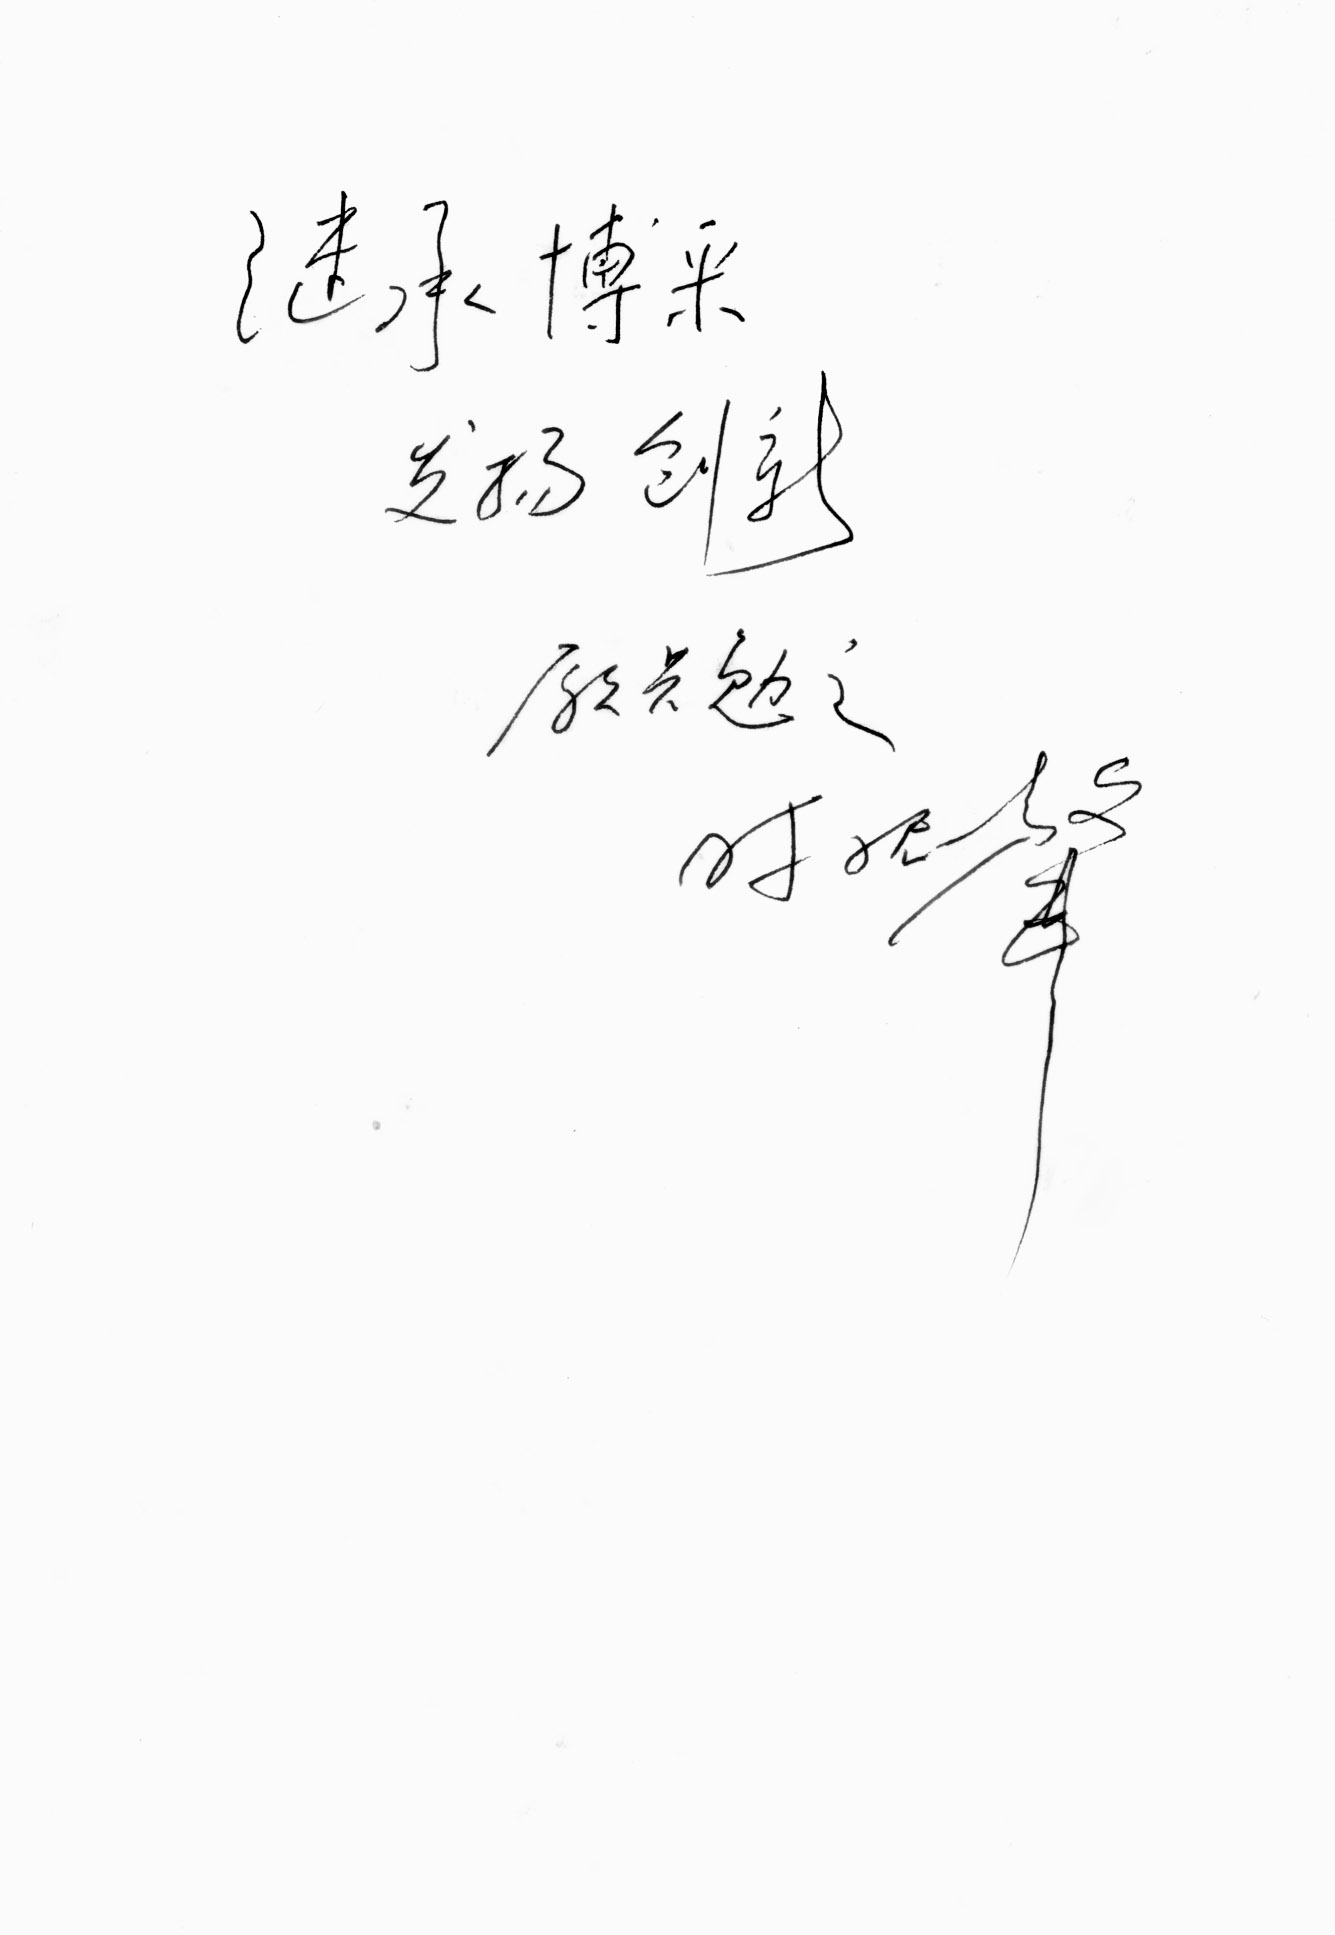 继承博采
发扬创新
愿共勉之
时振声